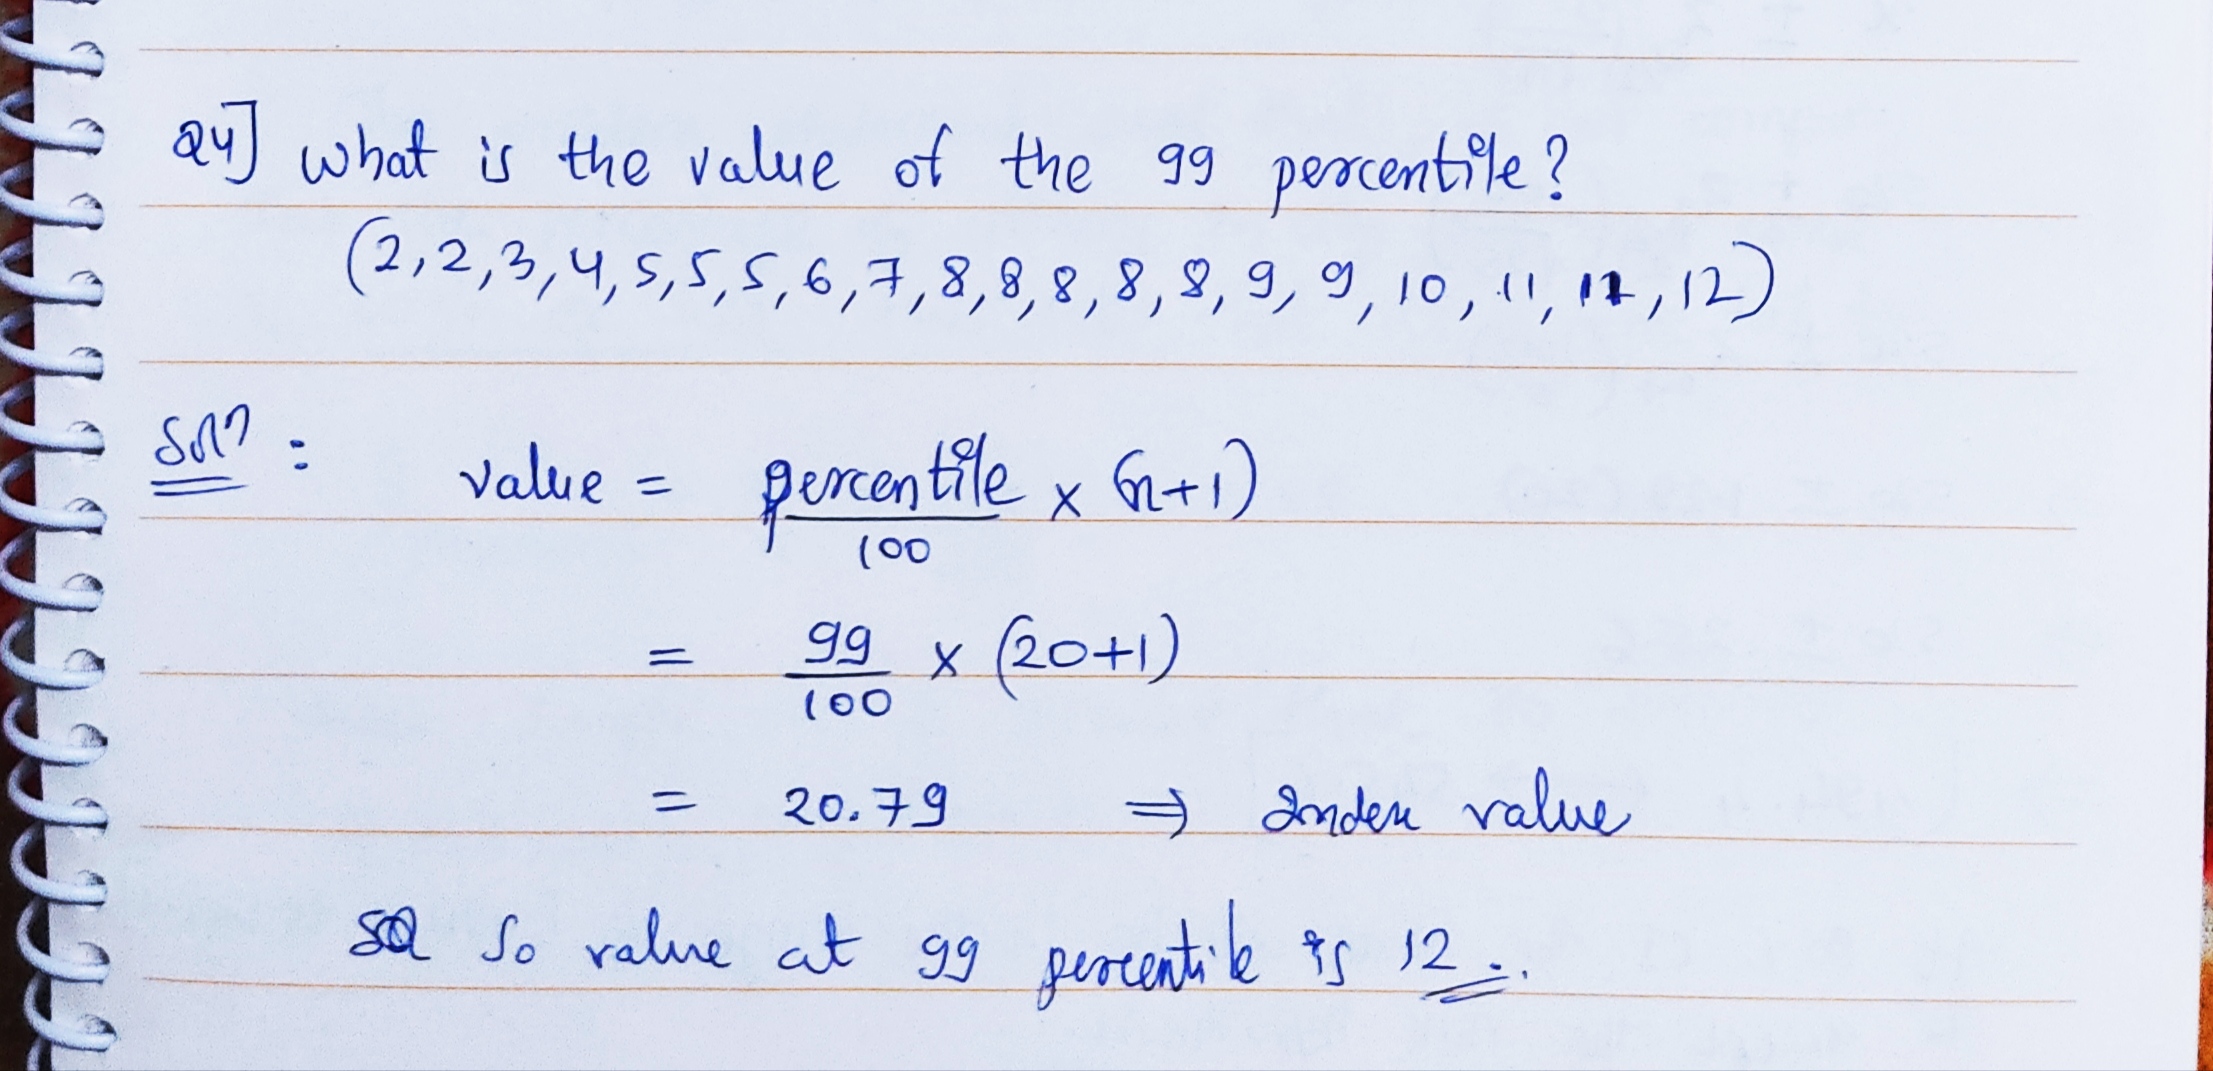 Q4] What is the value of the 99 percentile?
(2,2,3,4,5,5,5,6,7,8,8,8,8,8,9,9,10,11,11,12)
Solⁿ : value = percentile/100 × (n+1)
= 99/100 × (20+1)
= 20.79 ⇒ Index value
So value at 99 percentile is 12.